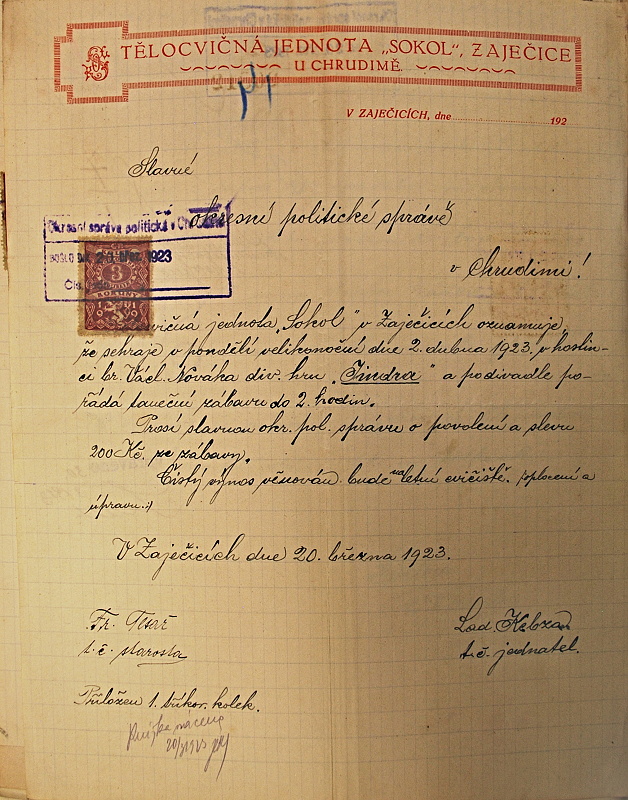 TĚLOCVIČNÁ JEDNOTA „SOKOL“, ZAJEČICE
U CHRUDIMĚ.
V ZAJEČICÍCH, dne 192
Slavné
okresní politické správě
v Chrudimi!
Okresní správa politická v
DOŠLO DNE 23. BŘEZ. 1923
Čís.
3
KORUNY
1919
vičná jednota „Sokol“ v Zaječicích oznamuje,
že sehraje v pondělí velikonoční dne 2. dubna 1923 v hostin-
ci br. Václ. Nováka div. hru „Jindra“ a po divadle po-
řádá taneční zábavu do 2. hodin.
Prosí slavnou okr. pol. správu o povolení a slevu
200 Kč. ze zábavy.
Čistý výnos věnován bude na letní cvičiště. /:oplocení a
úpravu.:/
V Zaječicích dne 20. března 1923.
Fr. Tesař
t. č. starosta
Lad. Kebza
t. č. jednatel.
Přiložen 1. tříkor. kolek.